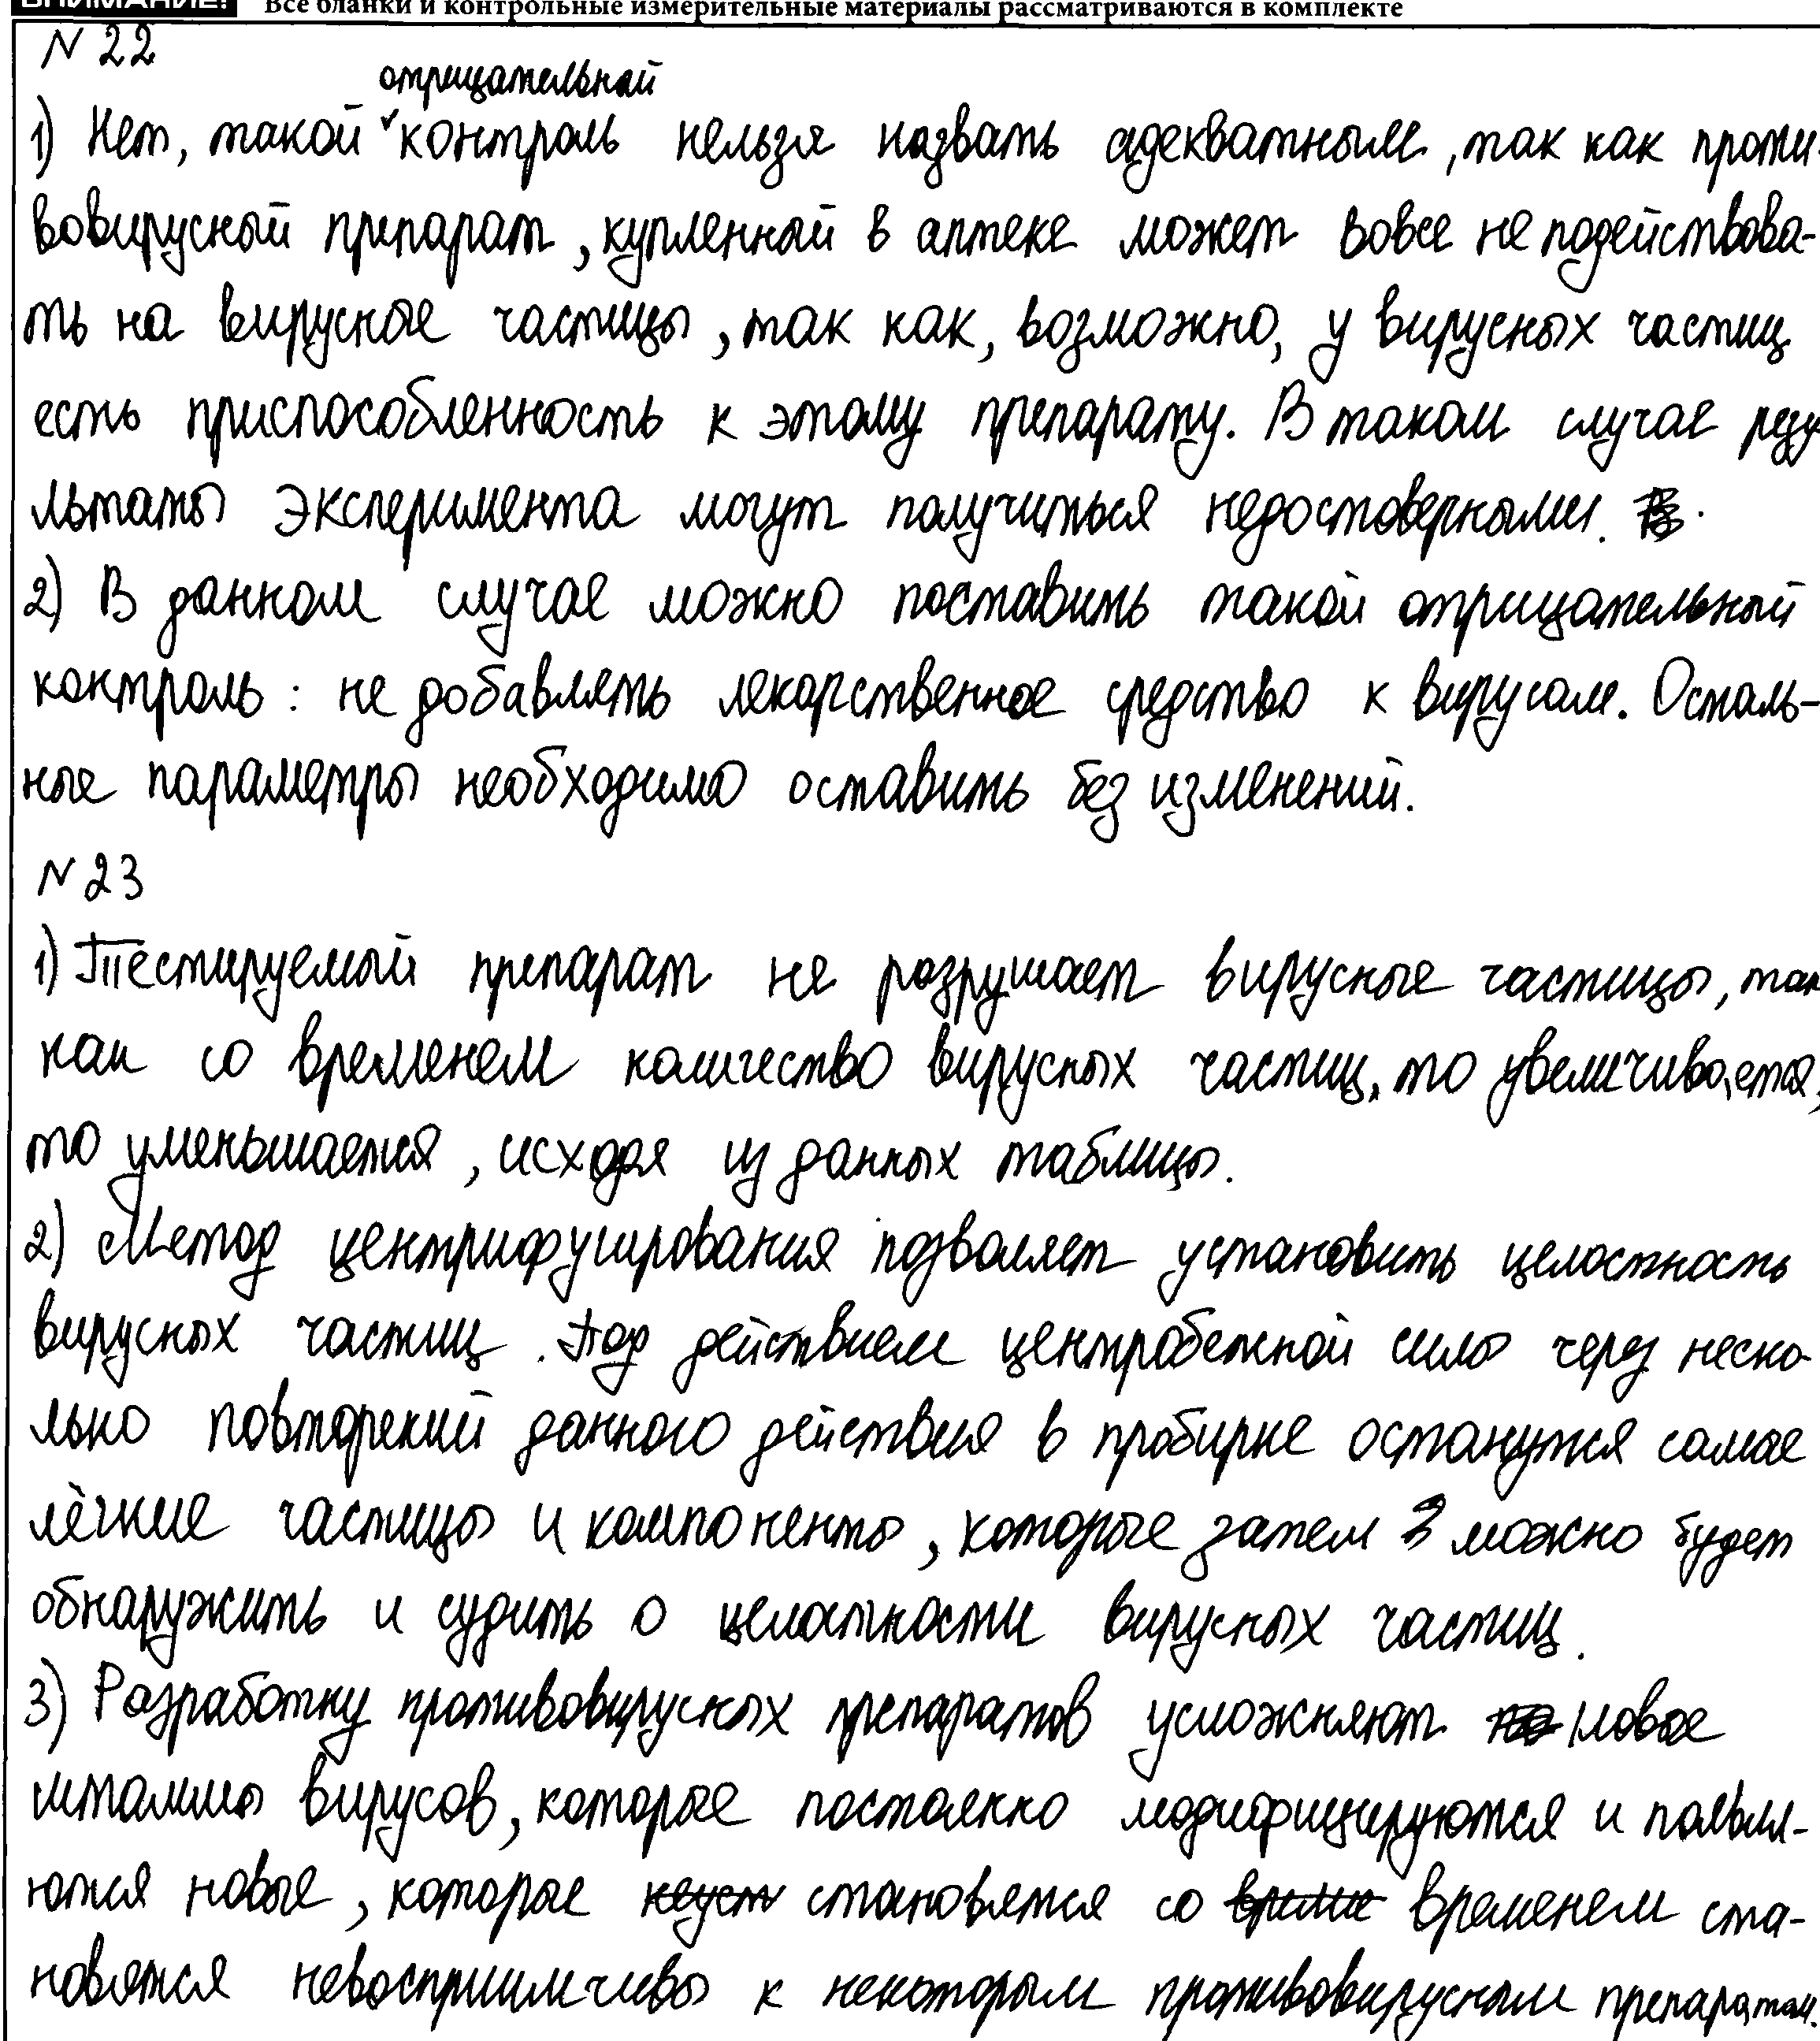 ВНИМАНИЕ! Все бланки и контрольные измерительные материалы рассматриваются в комплекте
N 22
отрицательный
1) Нет, такой контроль нельзя назвать адекватным, так как проти-
вовирусный препарат, купленный в аптеке может вовсе не подействова-
ть на вирусные частицы, так как, возможно, у вирусных частиц
есть приспособленность к этому препарату. В таком случае резу
льтаты эксперимента могут получиться недостоверными.
2) В данном случае можно поставить такой отрицательный
контроль: не добавлять лекарственное средство к вирусам. Осталь-
ные параметры необходимо оставить без изменений.
N 23
1) Тестируемый препарат не разрушает вирусные частицы, так
как со временем количество вирусных частиц, то увеличивается,
то уменьшается, исходя из данных таблицы.
2) Метод центрифугирования позволяет установить целостность
вирусных частиц. Под действием центробежной силы через неско-
лько повторений данного действия в пробирке останутся самые
лёгкие частицы и компоненты, которые затем можно будет
обнаружить и судить о целостности вирусных частиц.
3) Разработку противовирусных препаратов усложняют новые
штаммы вирусов, которые постоянно модифицируются и появля-
ются новые, которые становятся со временем ста-
новятся невосприимчивы к некоторым противовирусным препаратам.